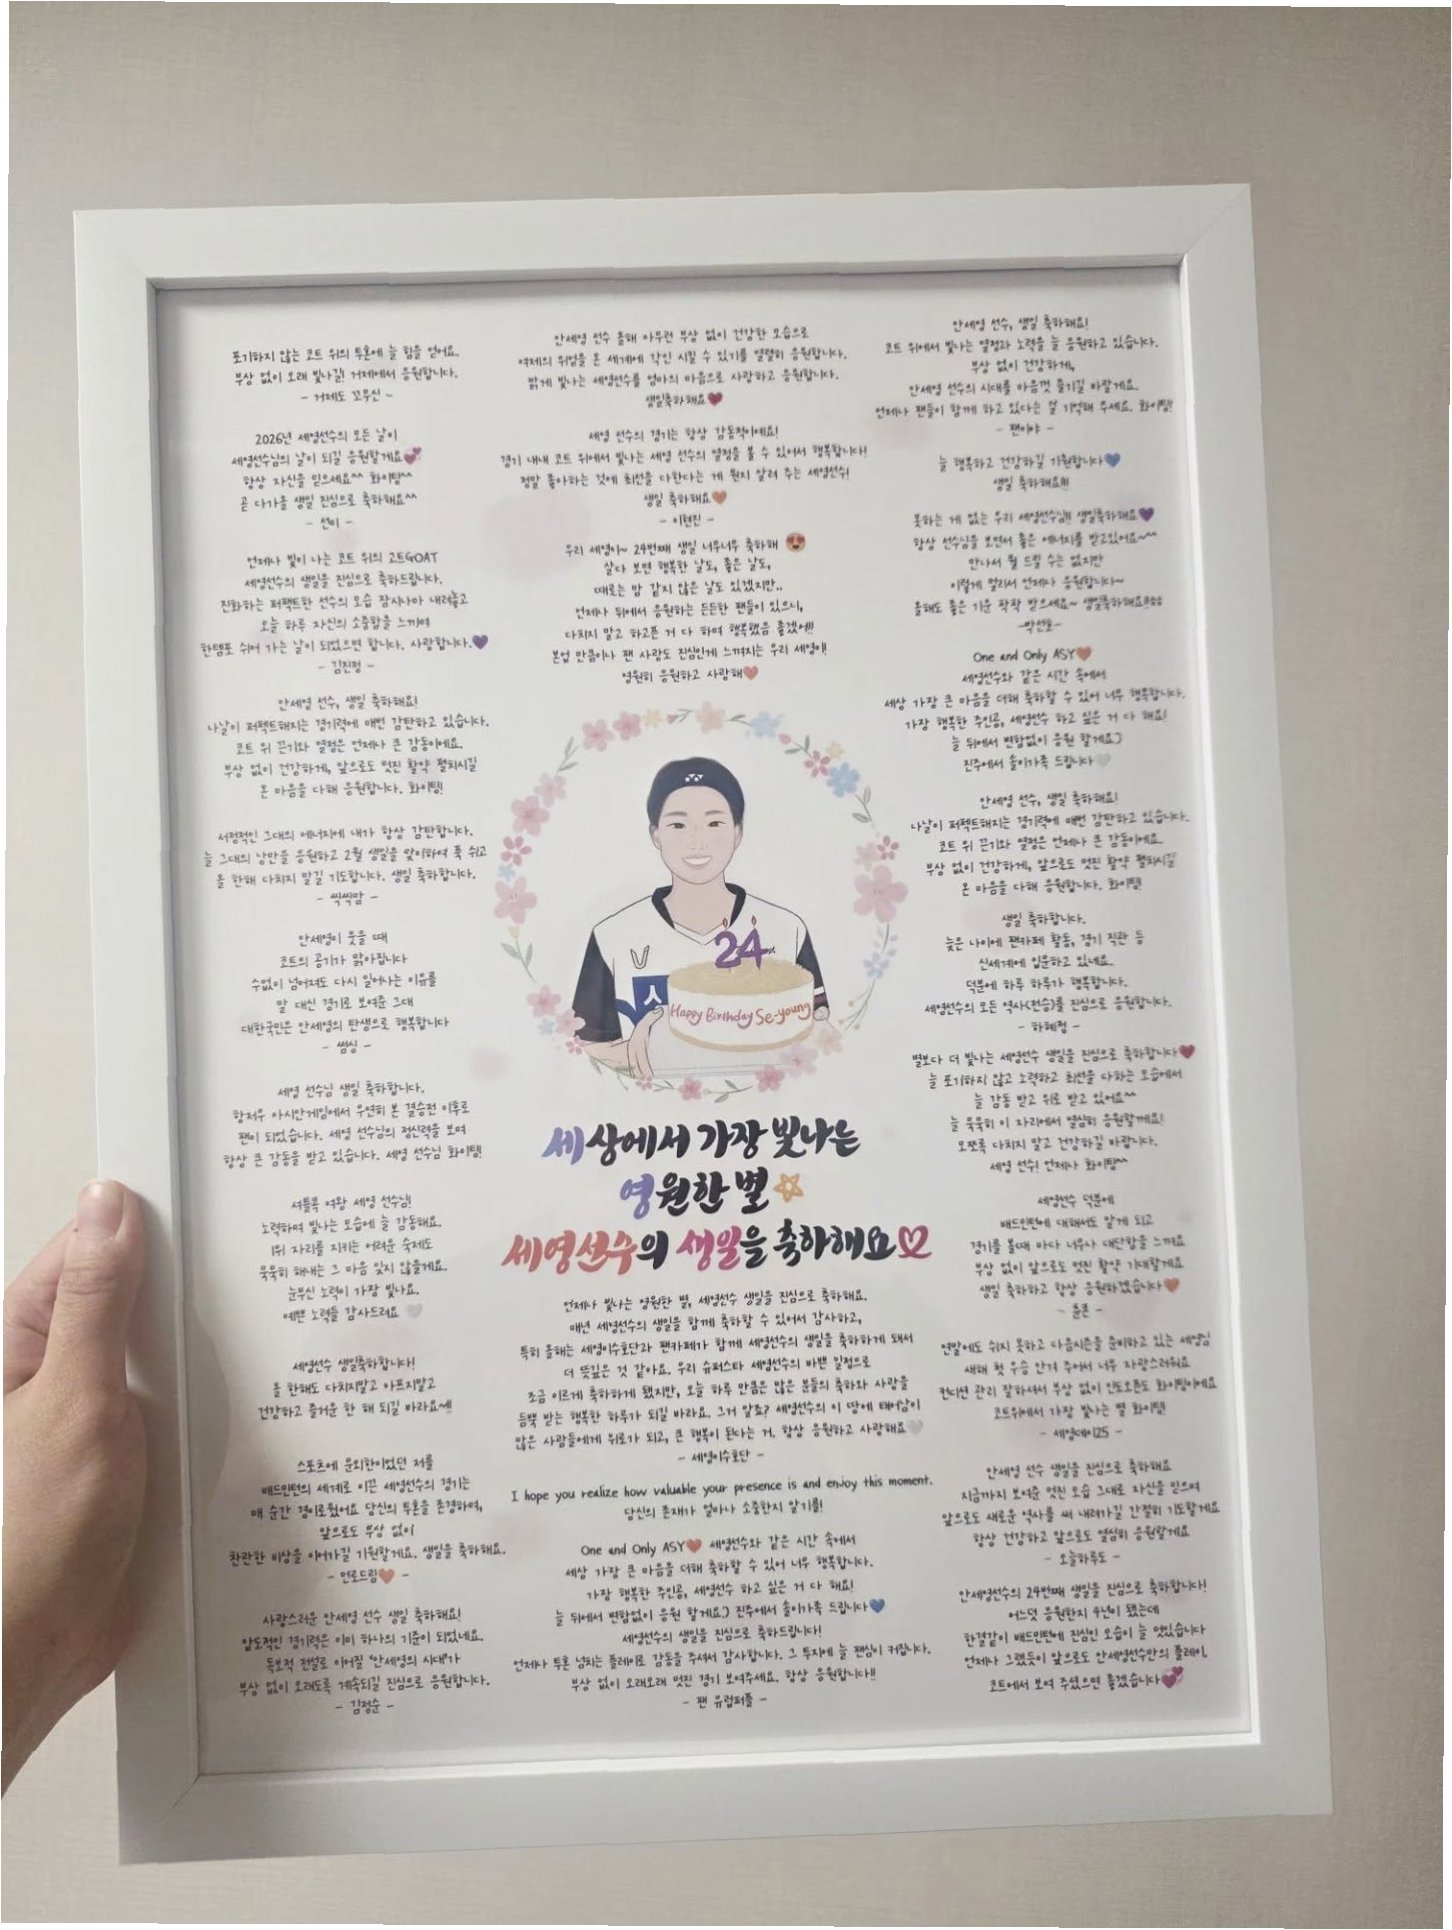 포기하지 않는 코트 위의 투혼에 늘 힘을 얻어요.
부상 없이 오래 빛나길! 거제에서 응원합니다.
- 거제도 꼬우신 -
2026년 세영선수의 모든 날이
세영선수님의 날이 되길 응원할게요💕
항상 자신을 믿으세요^^ 화이팅^^
곧 다가올 생일 진심으로 축하해요^^
- 선미 -
언제나 빛이 나는 코트 위의 고트GOAT
세영선수의 생일을 진심으로 축하드립니다.
진화하는 퍼펙트한 선수의 모습 잠시나마 내려놓고
오늘 하루 자신의 소중함을 느끼며
한템포 쉬어 가는 날이 되었으면 합니다. 사랑합니다.💜
- 김진정 -
안세영 선수, 생일 축하해요!
나날이 퍼펙트해지는 경기력에 매번 감탄하고 있습니다.
코트 위 끈기와 열정은 언제나 큰 감동이에요.
부상 없이 건강하게, 앞으로도 멋진 활약 펼치시길
온 마음을 다해 응원합니다. 화이팅!
서정적인 그대의 에너지에 내가 항상 감탄합니다.
늘 그대의 낭만을 응원하고 2월 생일을 맞이하여 푹 쉬고
올 한해 다치지 말길 기도합니다. 생일 축하합니다.
- 씩씩맘 -
안세영이 웃을 때
코트의 공기가 맑아집니다
수없이 넘어져도 다시 일어나는 이유를
말 대신 경기로 보여준 그대
대한국민은 안세영의 탄생으로 행복합니다
- 썸싱 -
세영 선수님 생일 축하합니다.
항저우 아시안게임에서 우연히 본 결승전 이후로
팬이 되었습니다. 세영 선수님의 정신력을 보며
항상 큰 감동을 받고 있습니다. 세영 선수님 화이팅!
셔틀콕 여왕 세영 선수님!!
노력하며 빛나는 모습에 늘 감동해요.
1위 자리를 지키는 어려운 숙제도
묵묵히 해내는 그 마음 잊지 않을게요.
눈부신 노력이 가장 빛나요.
예쁜 노력들 감사드려요 🤍
세영선수 생일축하합니다!
올 한해도 다치지말고 아프지말고
건강하고 즐거운 한 해 되길 바라요~!!
스포츠에 문외한이었던 저를
배드민턴의 세계로 이끈 세영선수의 경기는
매 순간 경이로웠어요 당신의 투혼을 존경하며,
앞으로도 부상 없이
찬란한 비상을 이어가길 기원할게요. 생일을 축하해요.
- 언로드림🧡 -
사랑스러운 안세영 선수 생일 축하해요!
압도적인 경기력은 이미 하나의 기준이 되었네요.
독보적 전설로 이어질 '안세영의 시대'가
부상 없이 오래도록 계속되길 진심으로 응원합니다.
- 김정순 -
안세영 선수 올해 아무런 부상 없이 건강한 모습으로
여제의 위엄을 온 세계에 각인 시킬 수 있기를 열렬히 응원합니다.
밝게 빛나는 세영선수를 엄마의 마음으로 사랑하고 응원합니다.
생일축하해요❤
세영 선수의 경기는 항상 감동적이에요!
경기 내내 코트 위에서 빛나는 세영 선수의 열정을 볼 수 있어서 행복합니다!
정말 좋아하는 것에 최선을 다한다는 게 뭔지 알려 주는 세영선수!
생일 축하해요🧡
- 이현진 -
우리 세영이~ 24번째 생일 너무너무 축하해 😍
살다 보면 행복한 날도, 좋은 날도,
때로는 맘 같지 않은 날도 있겠지만..
언제나 뒤에서 응원하는 든든한 팬들이 있으니,
다치지 말고 하고픈 거 다 하며 행복했음 좋겠어!!
본업 만큼이나 팬 사랑도 진심인게 느껴지는 우리 세영이!
영원히 응원하고 사랑해🧡
24
Happy Birthday Se-young
세상에서 가장 빛나는
영원한 별
세영선수의 생일을 축하해요
언제나 빛나는 영원한 별, 세영선수 생일을 진심으로 축하해요.
매년 세영선수의 생일을 함께 축하할 수 있어서 감사하고,
특히 올해는 세영이수호단과 팬카페가 함께 세영선수의 생일을 축하하게 돼서
더 뜻깊은 것 같아요. 우리 슈퍼스타 세영선수의 바쁜 일정으로
조금 이르게 축하하게 됐지만, 오늘 하루 만큼은 많은 분들의 축하와 사랑을
듬뿍 받는 행복한 하루가 되길 바라요. 그거 알죠? 세영선수의 이 땅에 태어남이
많은 사람들에게 위로가 되고, 큰 행복이 된다는 거. 항상 응원하고 사랑해요🤍
- 세영이수호단 -
I hope you realize how valuable your presence is and enjoy this moment.
당신의 존재가 얼마나 소중한지 알기를!
One and Only ASY🧡 세영선수와 같은 시간 속에서
세상 가장 큰 마음을 더해 축하할 수 있어 너무 행복합니다.
가장 행복한 주인공, 세영선수 하고 싶은 거 다 해요!
늘 뒤에서 변함없이 응원 할게요:) 진주에서 솔이가족 드립니다💙
세영선수의 생일을 진심으로 축하드립니다!
언제나 투혼 넘치는 플레이로 감동을 주셔서 감사합니다. 그 투지에 늘 팬심이 커집니다.
부상 없이 오래오래 멋진 경기 보여주세요. 항상 응원합니다!!
- 팬 유럽퍼플 -
안세영 선수, 생일 축하해요!
코트 위에서 빛나는 열정과 노력을 늘 응원하고 있습니다.
부상 없이 건강하게,
안세영 선수의 시대를 마음껏 즐기길 바랄게요.
언제나 팬들이 함께 하고 있다는 걸 기억해 주세요. 화이팅!
- 팬이야 -
늘 행복하고 건강하길 기원합니다💙
생일 축하해요!!!
못하는 게 없는 우리 세영선수님!! 생일축하해요💜
항상 선수님을 보면서 좋은 에너지를 받고있어요~^^
만나서 뭘 드릴 수는 없지만
이렇게 멀리서 언제나 응원합니다~
올해도 좋은 기운 팍팍 받으세요~ 생일축하해요!!
-박선호-
One and Only ASY🧡
세영선수와 같은 시간 속에서
세상 가장 큰 마음을 더해 축하할 수 있어 너무 행복합니다.
가장 행복한 주인공, 세영선수 하고 싶은 거 다 해요!
늘 뒤에서 변함없이 응원 할게요:)
진주에서 솔이가족 드립니다🤍
안세영 선수, 생일 축하해요!
나날이 퍼펙트해지는 경기력에 매번 감탄하고 있습니다.
코트 위 끈기와 열정은 언제나 큰 감동이에요.
부상 없이 건강하게, 앞으로도 멋진 활약 펼치시길
온 마음을 다해 응원합니다. 화이팅!
생일 축하합니다.
늦은 나이에 팬카페 활동, 경기 직관 등
신세계에 입문하고 있네요.
덕분에 하루 하루가 행복합니다.
세영선수의 모든 역사(전승)를 진심으로 응원합니다.
- 하혜정 -
별보다 더 빛나는 세영선수 생일을 진심으로 축하합니다❤
늘 포기하지 않고 노력하고 최선을 다하는 모습에서
늘 감동 받고 위로 받고 있어요^^
늘 묵묵히 이 자리에서 열심히 응원할께요!
모쪼록 다치지 말고 건강하길 바랍니다.
세영 선수! 언제나 화이팅^^
세영선수 덕분에
배드민턴에 대해서도 알게 되고
경기를 볼때 마다 너무나 대단함을 느껴요
부상 없이 앞으로도 멋진 활약 기대할게요
생일 축하하고 항상 응원하겠습니다🧡
- 윤른 -
연말에도 쉬지 못하고 다음시즌을 준비하고 있는 세영님
새해 첫 우승 안겨 주어서 너무 자랑스러워요
컨디션 관리 잘하셔서 부상 없이 인도오픈도 화이팅이에요
코트위에서 가장 빛나는 별 화이팅!
- 세영데이25 -
안세영 선수 생일을 진심으로 축하해요
지금까지 보여준 멋진 모습 그대로 자신을 믿으며
앞으로도 새로운 역사를 써 내려가길 간절히 기도할게요
항상 건강하고 앞으로도 열심히 응원할게요
- 오늘하루도 -
안세영선수의 24번째 생일을 진심으로 축하합니다!
어느덧 응원한지 4년이 됐는데
한결같이 배드민턴에 진심인 모습이 늘 멋있습니다
언제나 그랬듯이 앞으로도 안세영선수만의 플레이,
코트에서 보여 주셨으면 좋겠습니다💕